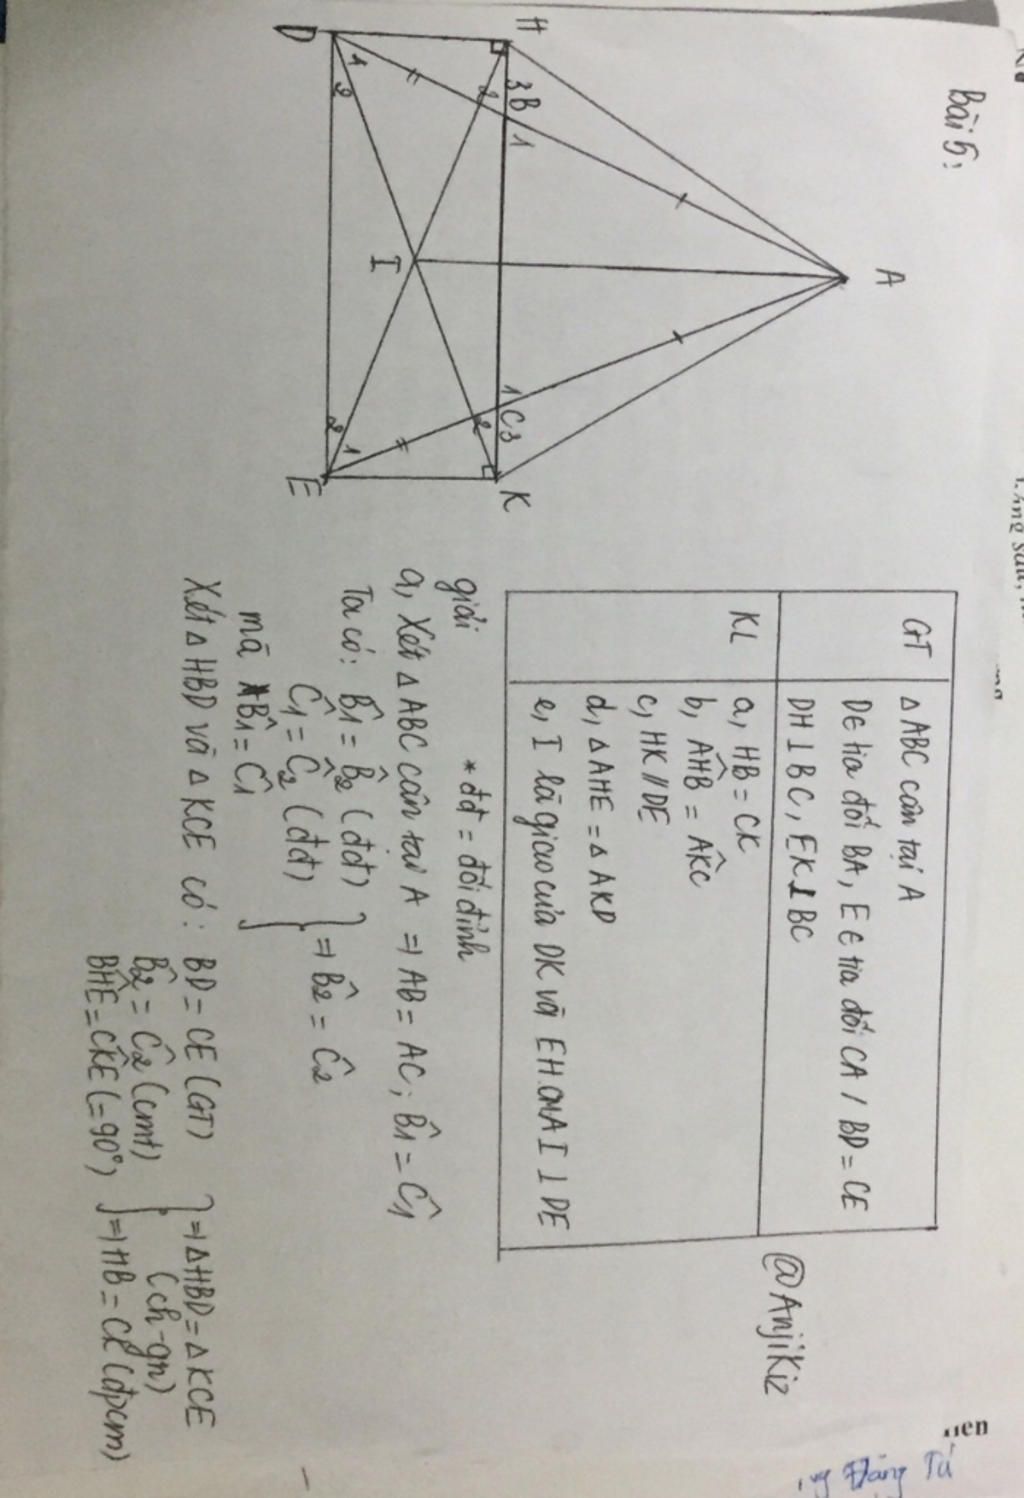 Bài 5:
A
H
D
3 B 1
2
1
2
I
1 C 3
2
2 1
E
K
GT
△ABC cân tại A
D∈ tia đối BA, E∈ tia đối CA / BD = CE
DH ⊥ BC, EK ⊥ BC
KL
a, HB = CK
b, AĤB = AK̂C
c, HK // DE
d, △AHE = △AKD
e, I là giao của DK và EH. CM AI ⊥ DE
@AnjiKiz
giải
* đđ = đối đỉnh
a, Xét △ABC cân tại A ⇒ AB = AC; B̂1 = Ĉ1
Ta có: B̂1 = B̂2 (đđ)
Ĉ1 = Ĉ2 (đđ)
mà B̂1 = Ĉ1
} ⇒ B̂2 = Ĉ2
Xét △HBD và △KCE có: BD = CE (GT)
B̂2 = Ĉ2 (cmt)
BĤE = CK̂E (= 90°)
} ⇒ △HBD = △KCE
(ch-gn)
} ⇒ HB = CK (đpcm)
Đăng Tú